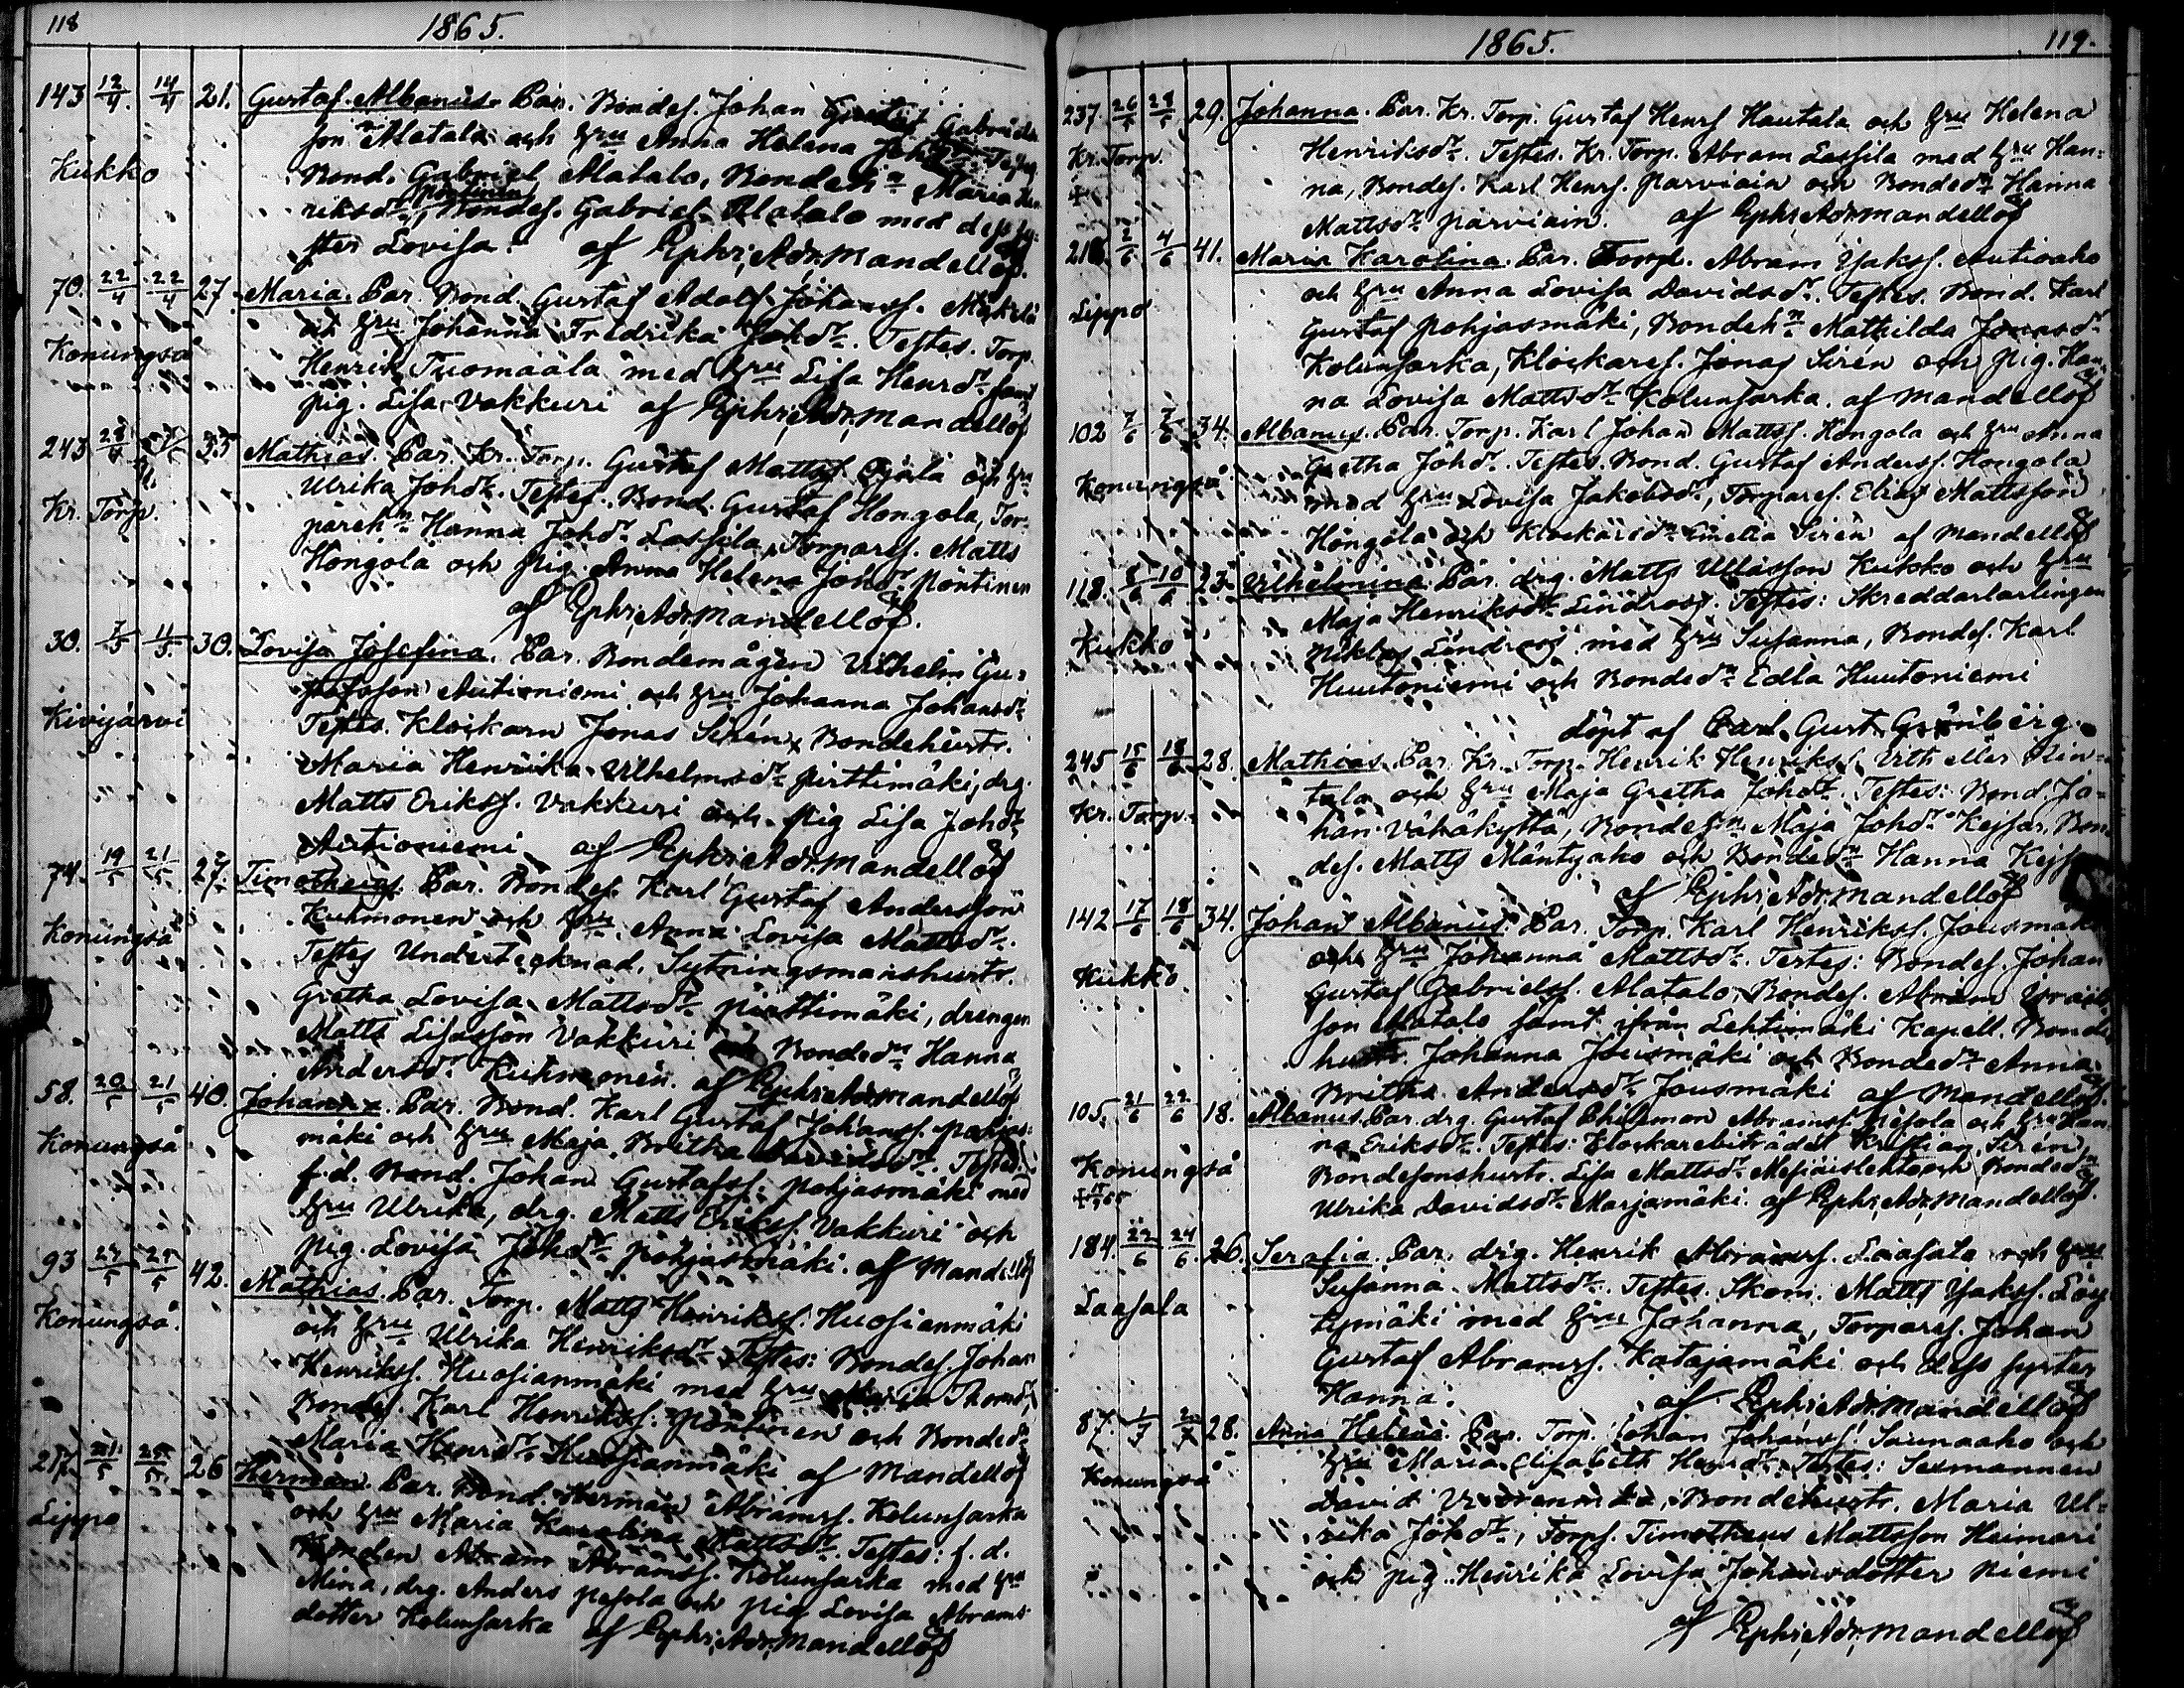 118
1865.
143 12/4 14/4 21. Gustaf Albanus. Par. Bondes. Johan Gabriels
son Alatalo och hru Anna Helena Johdr. Testes.
Kukko
Bond. Gabriel Alatalo, Bondehn Maria Hen
riksdr, Bondes. Gabriel Alatalo med dess sy-
ster Lovisa. af Ephr. Adr. Mandellöf.
70. 22/4 22/4 27. Maria. Par. Bond. Gustaf Adolf Johanss. Mäkelä
och hru Johanna Fredrika Johdr. Testes. Torp.
Konungså
Henrik Tuomaala med hru Lisa Henrdr samt
pig. Lisa Vakkuri af Ephr. Adr. Mandellöf
243 28/4 35 Mathias. Par. Kr. Torp. Gustaf Mattss. Ojala och hru
Ulrika Johdr. Testes. Bond. Gustaf Hongola, Tor-
Kr. Torp.
parehn Hanna Johdr Lassila, Torpares. Matts
Hongola och Pig. Anna Helena Johdr Pöntinen
af Ephr. Adr. Mandellöf.
30. 7/5 11/5 30. Lovisa Josefina. Par. Bondemågen Vilhelm Gu-
stafsson Autioniemi och hru Johanna Johansdr
Kivijärvi
Testes. Klockarn Jonas Sirén, Bondehustr.
Maria Henrika Vilhelmsdr Pirttimäki, drg.
Matts Erikss. Vakkuri och Pig Lisa Johdr
Autioniemi af Ephr. Adr. Mandellöf
74. 19/5 21/5 27. Timotheus. Par. Bondes. Karl Gustaf Andersson
Kuhmonen och hru Anna Lovisa Mattsdr.
Konungså
Testes Undertecknad, Sytningsmanshustr.
Gretha Lovisa Mattsdr Pirttimäki, drengen
Matts Lisasson Vakkuri och Bondedr Hanna
Andersdr Kuhmonen. af Ephr. Adr. Mandellöf
58. 20/5 21/5 40. Johanna. Par. Bond. Karl Gustaf Johanss. Pohjas-
mäki och hru Maja Britha Davidsdr. Testes.
Konungså
f.d. Bond. Johan Gustafss. Pohjasmäki med
hru Ulrika, drg. Matts Erikss. Vakkuri och
pig. Lovisa Johdr Pohjasmäki. af Mandellöf
93 25/5 42. Mathias. Par. Torp. Matts Henrikss. Huosianmäki
och hru Ulrika Henriksdr Testes: Bondes. Johan
Konungså.
Henrikss. Huosianmäki med hru Maria Thomdr,
Bondes. Karl Henrikss. Pöntinen och Bondedr
Maria Henrdr Huosianmäki af Mandellöf
25/5 26 Herman. Par. Bond. Herman Abramss. Kolunsarka
och hru Maria Karolina Mattsdr. Testes: f.d.
Lippo
Bonden Abram Abramss. Kolunsarka med hru
Mina, drg. Anders Pesola och pig Lovisa Abrams
dotter Kolunsarka af Ephr. Adr. Mandellöf
1865.
119.
237. 26/5 28/5 29. Johanna. Par. Kr. Torp. Gustaf Henrs Hautala och hru Helena
Kr. Torp.
Henriksdr. Testes. Kr. Torp. Abram Lassila med hru Han-
na, Bondes. Karl Henrs. Parviain och Bondedr Hanna
Mattsdr Parviain. af Ephr. Adr. Mandellöf
2/6 4/6 41. Maria Karolina. Par. Torp. Abram Isakss. Autioaho
och hru Anna Lovisa Davidsdr. Testes. Bond. Karl
Lippo
Gustaf Pohjasmäki, Bondehn Mathilda Jonasdr
Kolunsarka, Klockares. Jonas Sirén och pig. Han-
na Lovisa Mattsdr Kolunsarka. af Mandellöf
102 7/6 7/6 34. Albanus. Par. Torp. Karl Johan Mattss. Hongola och hru Anna
Gretha Johdr. Testes. Bond. Gustaf Anderss. Hongola
Konungså
med hru Lovisa Jakobsdr, Torpares. Elias Mattsson
Hongola och Klockaredr Emelia Sirén af Mandellöf
118. 8/6 10/6 23. Vilhelmina Par. drg. Matts Ullasson Kukko och hru
Maja Henriksdr Lindross. Testes: Skreddarlärlingen
Kukko
Niklas Lindross med hru Susanna, Bondes. Karl
Huutoniemi och Bondedr Edla Huutoniemi
döpt af Carl Gust. Grönberg.
245 15/6 18/6 28. Mathias Par. Kr. Torp. Henrik Henrikss. Urth eller Rin-
tala och hru Maja Gretha Johdr. Testes: Bond. Jo-
Kr. Torp.
han Vähäkyttä, Bondehn Maja Johdr Keisar, Bon-
des. Matts Mäntyaho och Bondedr Hanna Keisar
af Ephr. Adr. Mandellöf
142 17/6 18/6 34. Johan Albanus. Par. Torp. Karl Henrikss. Jousmäki
och hru Johanna Mattsdr. Testes: Bondes. Johan
Kukko
Gustaf Gabrielss. Alatalo, Bondes. Abram Israels
son Alatalo samt ifrån Lehtimäki Kapell. Bonde
hustr. Johanna Jousmäki och Bondedr Anna
Britha Andersdr Jousmäki af Mandellöf.
105. 21/6 22/6 18. Albanus. Par. drg. Gustaf Philemon Abramss. Pesola och hru Han-
na Eriksdr. Testes: Klockarebiträdet Kristian Sirén,
Konungså
Bondesonshustr. Lisa Mattsdr Mesiäislehto och Bondedr
Ulrika Davidsdr Marjamäki. af Ephr. Adr. Mandellöf.
184. 22/6 24/6 26. Serafia. Par. drg. Henrik Abramss. Laasala och hru
Susanna Mattsdr. Testes. Skom. Matts Isakss. Löy
Laasala
tymäki med hru Johanna, Torpares. Johan
Gustaf Abramss. Katajamäki och dess syster
Hanna. af Ephr. Adr. Mandellöf
87. 1/7 2/7 28. Anna Helena. Par. Torp. Johan Johanss. Saunaaho och
hru Maria Elisabeth Henrdr. Testes: Sexmannen
Konungså
David Vuorenmaa, Bondehustr. Maria Ul-
rika Johdr, Torps. Timotheus Mattsson Heimari
och pig. Henrika Lovisa Johansdotter Niemi
af Ephr. Adr. Mandellöf